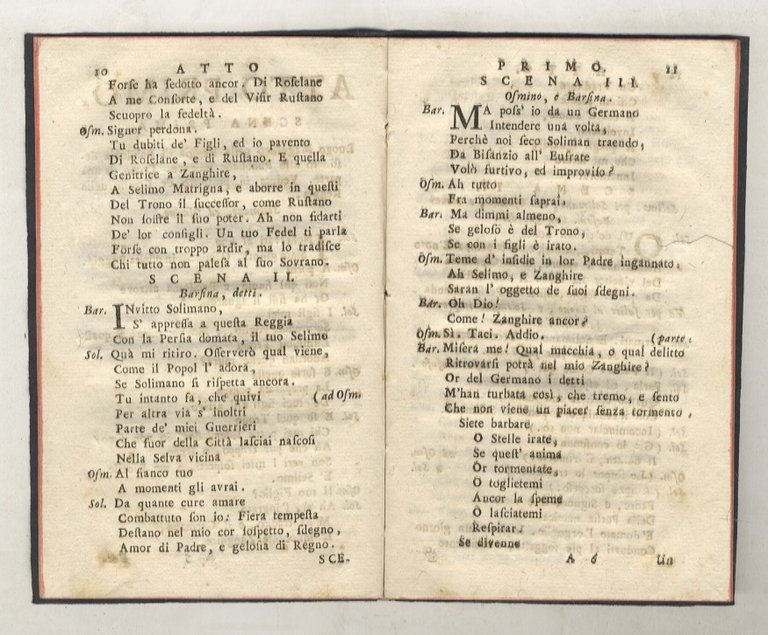 10 ATTO
Forſe ha ſedotto ancor. Di Roſelane
A me Conſorte, e del Viſir Ruſtano
Scuopro la fedeltà.
Oſm. Signer perdona.
Tu dubiti de' Figli, ed io pavento
Di Roſelane, e di Ruſtano. E quella
Genitrice a Zanghire,
A Selimo Matrigna, e aborre in queſti
Del Trono il ſucceſſor, come Ruſtano
Non ſoffre il ſuo poter. Ah non fidarti
De' lor conſigli. Un tuo Fedel ti parla
Forſe con troppo ardir, ma lo tradiſce
Chi tutto non paleſa al ſuo Sovrano.
SCENA II.
Barſina, detti.
Bar. INvitto Solimano,
S' appreſſa a queſta Reggia
Con la Perſia domata, il tuo Selimo
Sol. Quà mi ritiro. Oſſerverò qual viene,
Come il Popol l' adora,
Se Solimano ſi riſpetta ancora.
Tu intanto fa, che quivi (ad Oſm.
Per altra via s' inoltri
Parte de' miei Guerrieri
Che fuor della Città laſciai naſcoſi
Nella Selva vicina
Oſm. Al fianco tuo
A momenti gli avrai.
Sol. Da quante cure amare
Combattuto ſon io: Fiera tempeſta
Deſtano nel mio cor ſoſpetto, ſdegno,
Amor di Padre, e geloſia di Regno.
SCE-
PRIMO. 11
SCENA III.
Oſmino, e Barſina.
Bar. MA poſſ' io da un Germano
Intendere una volta,
Perchè noi ſeco Soliman traendo,
Da Biſanzio all' Eufrate
Volò furtivo, ed improviſo?
Oſm. Ah tutto
Fra momenti ſaprai,
Bar. Ma dimmi almeno,
Se geloſò è del Trono,
Se con i figli è irato.
Oſm. Teme d' inſidie in lor Padre ingannato,
Ah Selimo, e Zanghire
Saran l' oggetto de ſuoi ſdegni.
Bar. Oh Dio!
Come! Zanghire ancor?
Oſm. Sì. Taci. Addio. (parte.
Bar. Miſera me! Qual macchia, o qual delitto
Ritrovarſi potrà nel mio Zanghire?
Or del Germano i detti
M'han turbata così, che tremo, e ſento
Che non viene un piacer ſenza tormento,
Siete barbare
O Stelle irate,
Se queſt' anima
Or tormentate,
O toglietemi
Ancor la ſpeme
O laſciatemi
Reſpirar.
Se divenne
A 6 Un